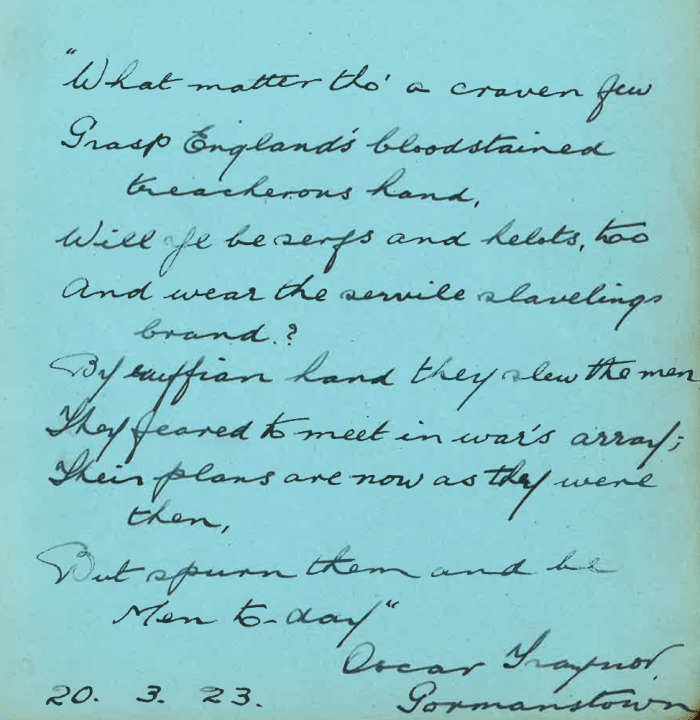 "What matter tho' a craven few
Grasp England's bloodstained
treacherous hand,
Will ye be serfs and helots, too
And wear the servile slavelings
brand.?
By ruffian hand they slew the men
They feared to meet in war's array;
Their plans are now as they were
then,
But spurn them and be
Men to-day"
Oscar Traynor.
20. 3. 23. Gormanstown